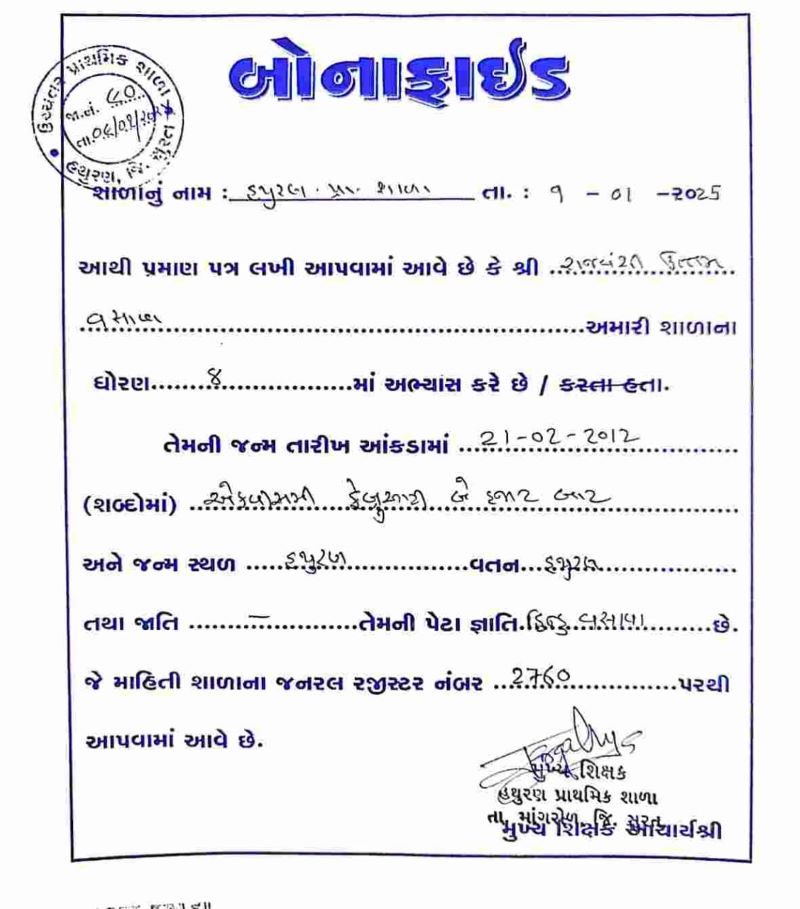 બોનાફાઇડ
ઉચ્ચતર પ્રાથમિક શાળા
જા.નં. ૮૦
હથુરણ, જિ. સુરત
શાળાનું નામ : હથુરણ. પ્રા. શાળા તા. : ૧ - ૦૧ - ૨૦25
આથી પ્રમાણ પત્ર લખી આપવામાં આવે છે કે શ્રી
વસાવા અમારી શાળાના
ધોરણ 8 માં અભ્યાસ કરે છે / કરતા હતા.
તેમની જન્મ તારીખ આંકડામાં 21-02-2012
(શબ્દોમાં) એકવીસમી ફેબ્રુઆરી બે હજાર બાર
અને જન્મ સ્થળ હથુરણ વતન હથુરણ
તથા જાતિ — તેમની પેટા જ્ઞાતિ હિન્દુ વસાવા છે.
જે માહિતી શાળાના જનરલ રજીસ્ટર નંબર 2760 પરથી
આપવામાં આવે છે.
મુખ્ય શિક્ષક
હથુરણ પ્રાથમિક શાળા
તા. માંગરોળ, જિ. સુરત
મુખ્ય શિક્ષક આચાર્યશ્રી